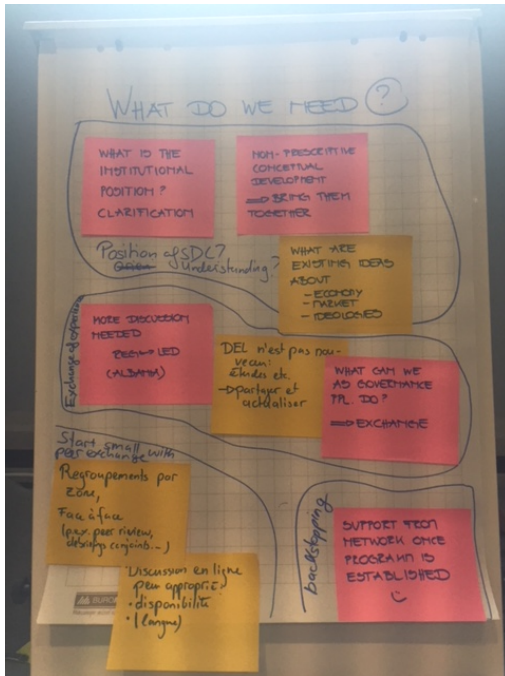 WHAT DO WE NEED ?
WHAT IS THE
INSTITUTIONAL
POSITION?
CLARIFICATION
NON-PRESCRIPTIVE
CONCEPTUAL
DEVELOPMENT
⇒ BRING THEM
TOGETHER
Position of SDC?
Understanding?
WHAT ARE
EXISTING IDEAS
ABOUT
- ECONOMY
- MARKET
- IDEOLOGIES
Exchange of
MORE DISCUSSION
NEEDED
→ LED
(ALBANIA)
DEL n'est pas nou-
veau:
études etc.
→ partager et
actualiser
WHAT CAN WE
AS GOVERNANCE
PPL. DO?
⇒ EXCHANGE
Start small
peer exchange with
Regroupements par
zone,
Face à face
(p.ex. peer review,
debriefings conjoints...)
Discussion en ligne
peu approprié:
• disponibilité
• (langue)
backstopping
SUPPORT FROM
NETWORK ONCE
PROGRAMM IS
ESTABLISHED